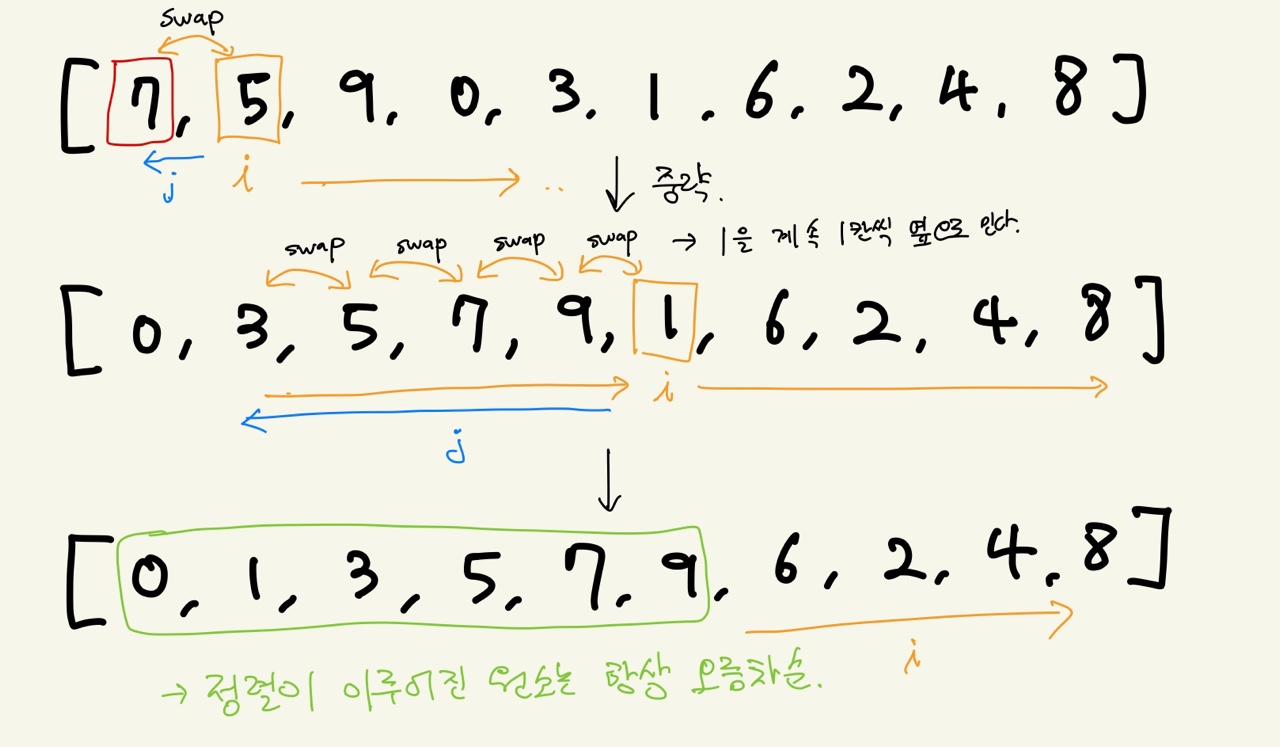 swap
[ 7, 5, 9, 0, 3, 1, 6, 2, 4, 8 ]
j i ..
중략.
swap swap swap swap → 1을 계속 1칸씩 옆으로 민다.
[ 0, 3, 5, 7, 9, 1, 6, 2, 4, 8 ]
i
j
[ 0, 1, 3, 5, 7, 9, 6, 2, 4, 8 ]
i
→ 정렬이 이루어진 원소는 항상 오름차순.